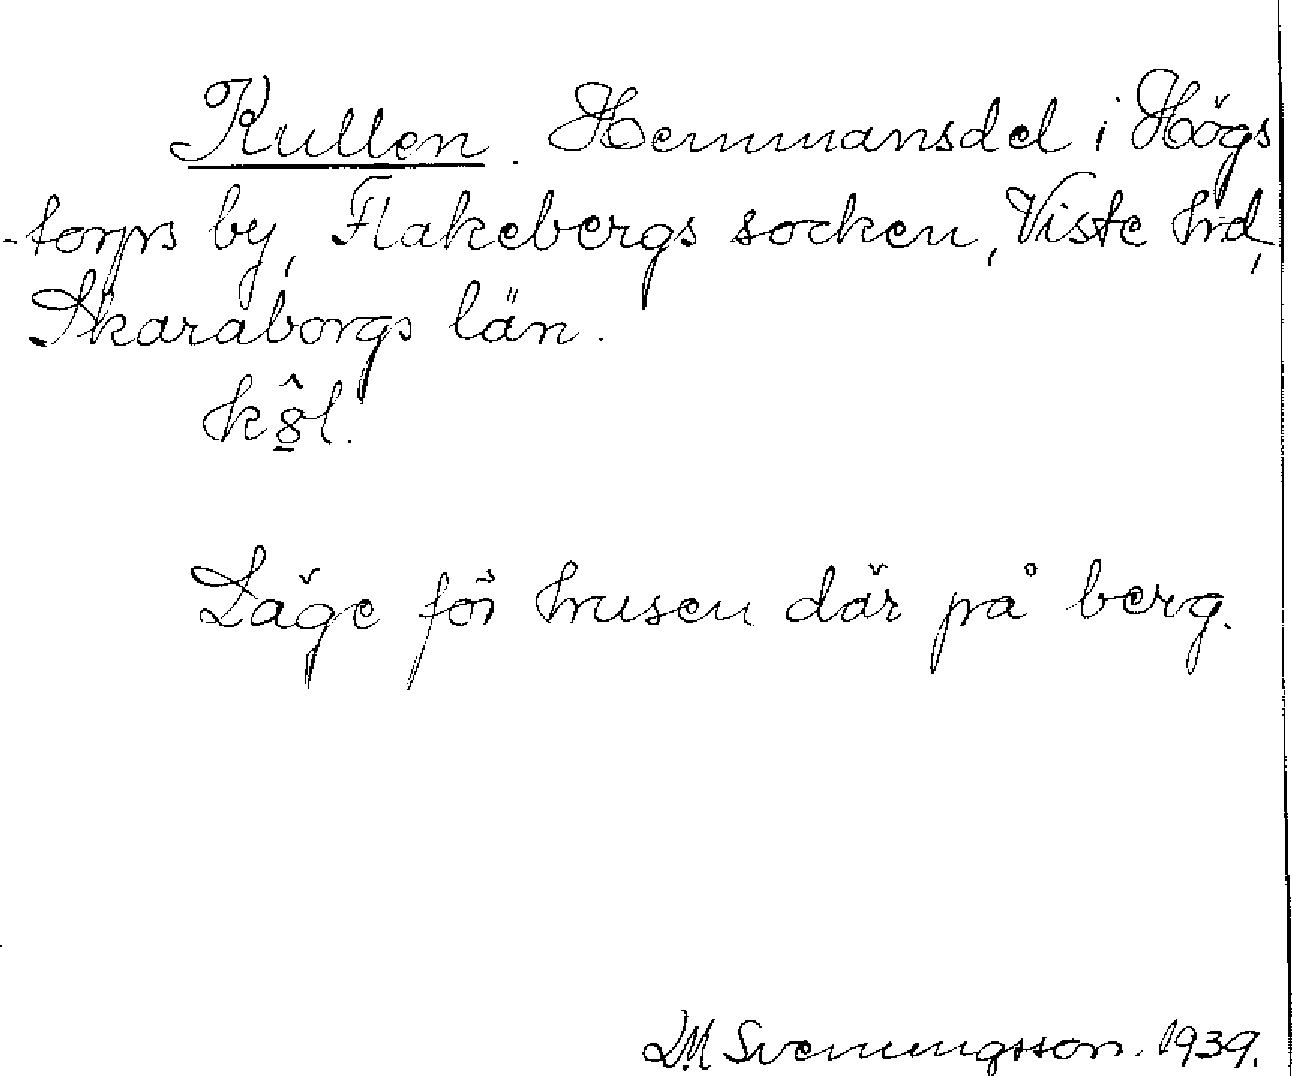 Kullen. Hemmansdel i Högs
-torps by, Flakebergs socken, Viste hd,
Skaraborgs län.
Läge för husen där på berg.
DM Svenungsson. 1939.